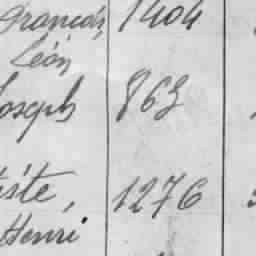 François, 1404
Léon
Joseph 863
iste, 1276
Henri